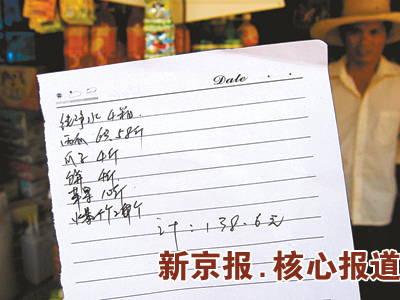 Date
纯净水 4箱
西瓜 63.58斤
瓜子 4斤
4斤
苹果 10斤
水
计:138.6元
新京报.核心报道